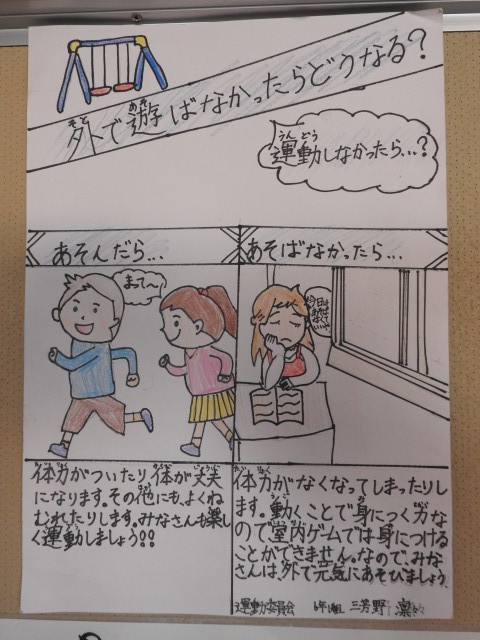 外で遊ばなかったらどうなる?
運動しなかったら...?
あそんだら...
あそばなかったら...
まって〜
体力がついたり体が丈夫
になります。その他にも、よくね
むれたりします。みなさんも楽し
く運動しましょう!!
体力がなくなってしまったりし
ます。動くことで身につく力な
ので室内ゲームでは身につける
ことができません。なので、みな
さんは、外で元気にあそびましょう。
運動委員会 6年1組 三芳野 凛々